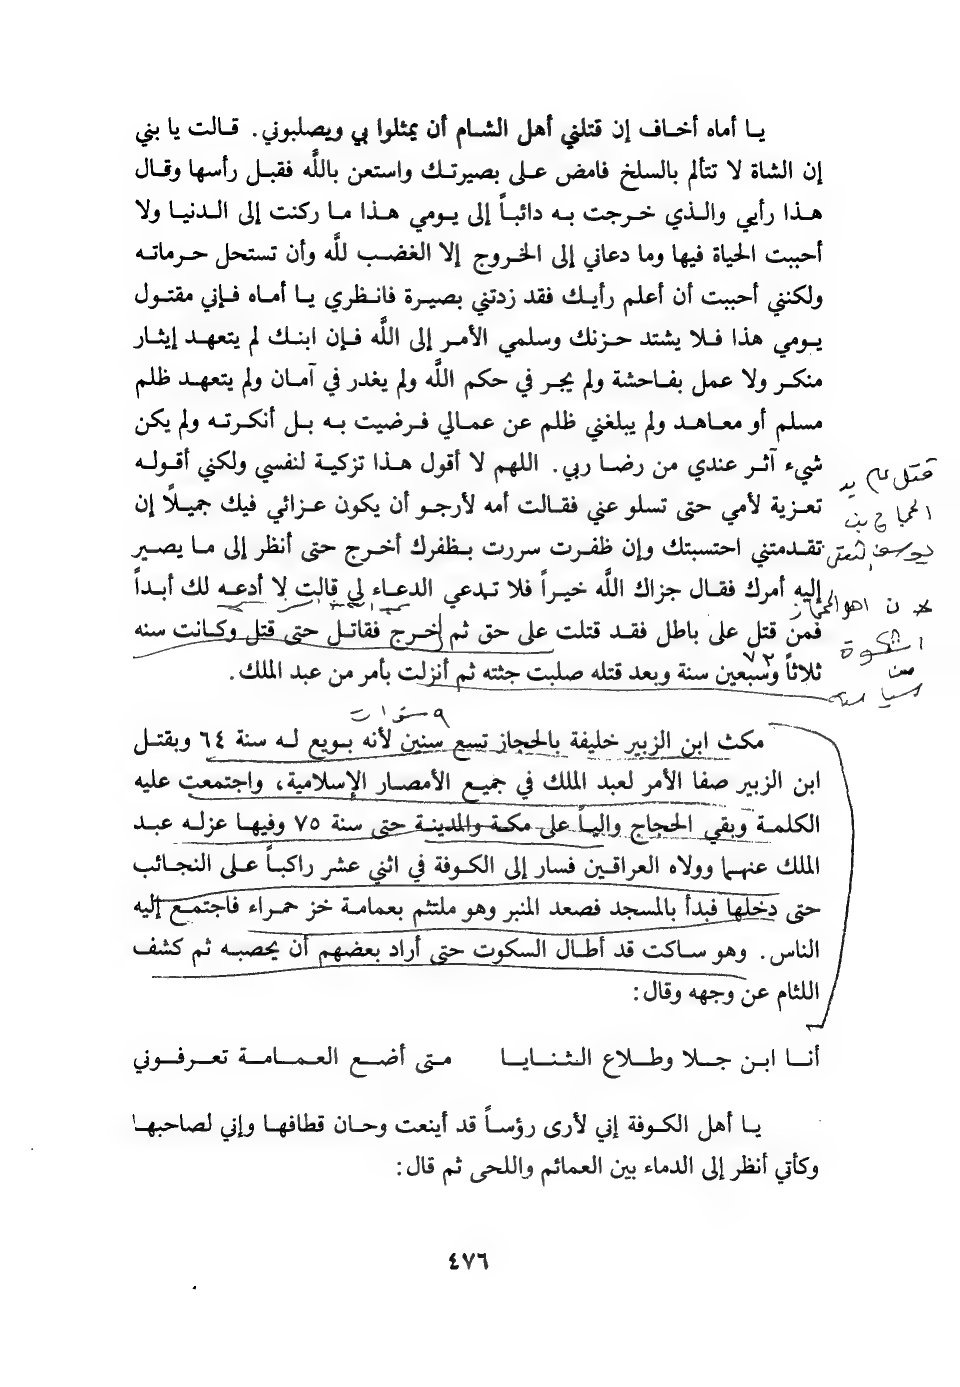 يا أماه أخاف إن قتلني أهل الشام أن يمثلوا بي ويصلبوني. قالت يا بني
إن الشاة لا تتألم بالسلخ فامض على بصيرتك واستعن باللَّه فقبل رأسها وقال
هذا رأيي والذي خرجت به دائباً إلى يومي هذا ما ركنت إلى الدنيا ولا
أحببت الحياة فيها وما دعاني إلى الخروج إلا الغضب للَّه وأن تستحل حرماته
ولكنني أحببت أن أعلم رأيك فقد زدتني بصيرة فانظري يا أماه فإني مقتول
يومي هذا فلا يشتد حزنك وسلمي الأمر إلى اللَّه فإن ابنك لم يتعهد إيثار
منكر ولا عمل بفاحشة ولم يجر في حكم اللَّه ولم يغدر في آمان ولم يتعهد ظلم
مسلم أو معاهد ولم يبلغني ظلم عن عمالي فرضيت به بل أنكرته ولم يكن
شيء آثر عندي من رضا ربي. اللهم لا أقول هذا تزكية لنفسي ولكني أقوله
تعزية لأمي حتى تسلو عني فقالت أمه لأرجو أن يكون عزائي فيك جميلاً إن
تقدمتني احتسبتك وإن ظفرت سررت بظفرك أخرج حتى أنظر إلى ما يصير
إليه أمرك فقال جزاك اللَّه خيراً فلا تدعي الدعاء لي قالت لا أدعه لك أبداً
فمن قتل على باطل فقد قتلت على حق ثم خرج فقاتل حتى قتل وكانت سنه
٧٢
ثلاثاً وسبعين سنة وبعد قتله صلبت جثته ثم أنزلت بأمر من عبد الملك.
٩ سنوات
مكث ابن الزبير خليفة بالحجاز تسع سنين لأنه بويع له سنة ٦٤ وبقتل
ابن الزبير صفا الأمر لعبد الملك في جميع الأمصار الإسلامية، واجتمعت عليه
الكلمة وبقي الحجاج والياً على مكة والمدينة حتى سنة ٧٥ وفيها عزله عبد
الملك عنهما وولاه العراقين فسار إلى الكوفة في اثني عشر راكباً على النجائب
حتى دخلها فبدأ بالمسجد فصعد المنبر وهو ملتثم بعمامة خز حمراء فاجتمع إليه
الناس. وهو ساكت قد أطال السكوت حتى أراد بعضهم أن يحصبه ثم كشف
اللثام عن وجهه وقال:
أنا ابن جلا وطلاع الثنايا متى أضع العمامة تعرفوني
يا أهل الكوفة إني لأرى رؤساً قد أينعت وحان قطافها وإني لصاحبها
وكأني أنظر إلى الدماء بين العمائم واللحى ثم قال:
٤٧٦